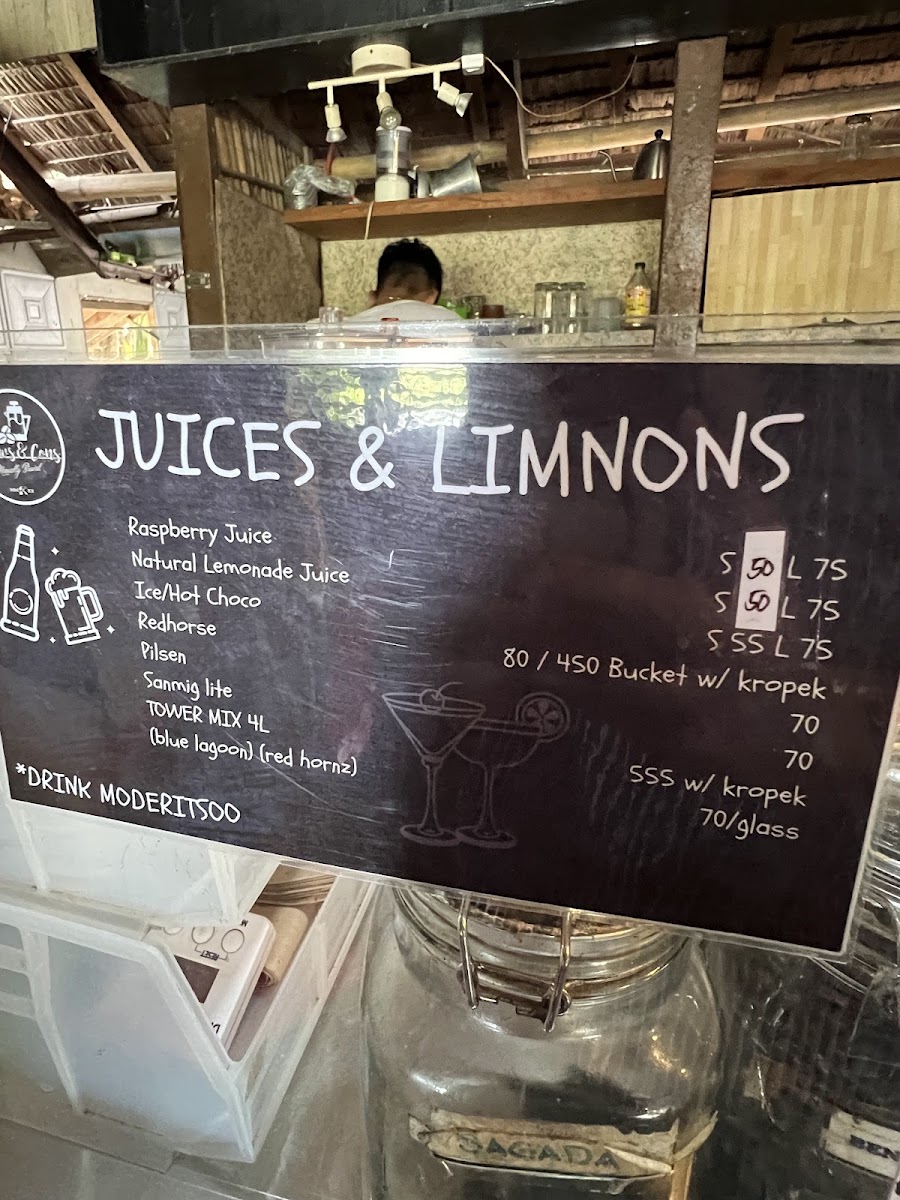 & Cons
JUICES & LIMNONS
Raspberry Juice S 50 L 75
Natural Lemonade Juice S 50 L 75
Ice/Hot Choco S 55 L 75
Redhorse 80 / 450 Bucket w/ kropek
Pilsen 70
Sanmig lite 70
TOWER MIX 4L 555 w/ kropek
(blue lagoon) (red hornz) 70/glass
*DRINK MODERITSOO
SAGADA
BEN